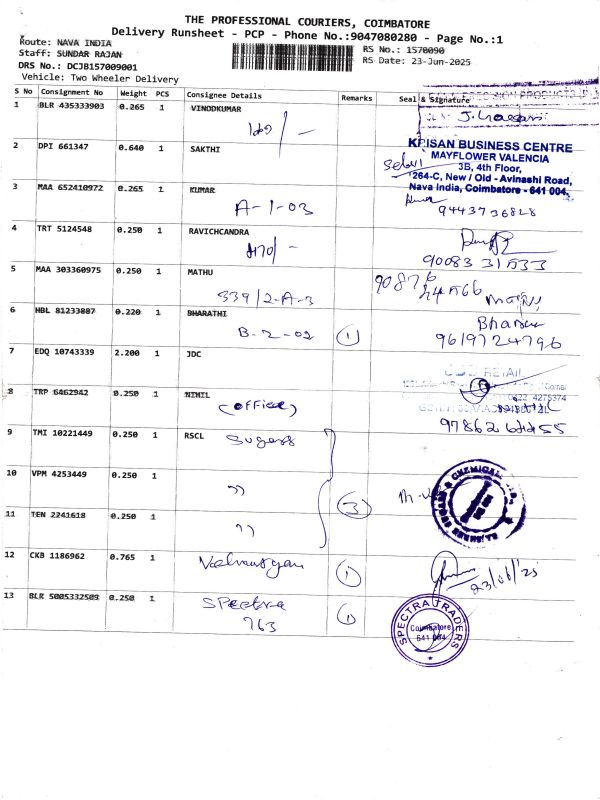 THE PROFESSIONAL COURIERS, COIMBATORE
Delivery Runsheet - PCP - Phone No.:9047080280 - Page No.:1
Route: NAVA INDIA
RS No.: 1570090
Staff: SUNDAR RAJAN
RS Date: 23-Jun-2025
DRS No.: DCJB157009001
Vehicle: Two Wheeler Delivery
S No Consignment No Weight PCS Consignee Details Remarks Seal & Signature
1 BLR 435333903 0.265 1 VINODKUMAR
2 DPI 661347 0.640 1 SAKTHI
KRISAN BUSINESS CENTRE
MAYFLOWER VALENCIA
3B, 4th Floor,
264-C, New / Old - Avinashi Road,
Nava India, Coimbatore - 641 004.
Selvi
3 MAA 652410972 0.265 1 KUMAR
A-1-03
9443736828
4 TRT 5124548 0.250 1 RAVICHCANDRA
5 MAA 303360975 0.250 1 MATHU
339/2-A-3
6 HBL 81233887 0.220 1 BHARATHI
B-2-02 1
9619724796
7 EDQ 10743339 2.200 1 JDC
RETAIL
8 TRP 6462942 0.250 1 NIMIL
(office)
9 TMI 10221449 0.250 1 RSCL
Sugars
10 VPM 4253449 0.250 1
" 3
11 TEN 2241618 0.250 1
"
12 CKB 1186962 0.765 1 Velmurgan 1
23/06/25
13 BLR 5005332509 0.250 1 Spectra 1
763
SPECTRA TRADERS
Coimbatore
641 004